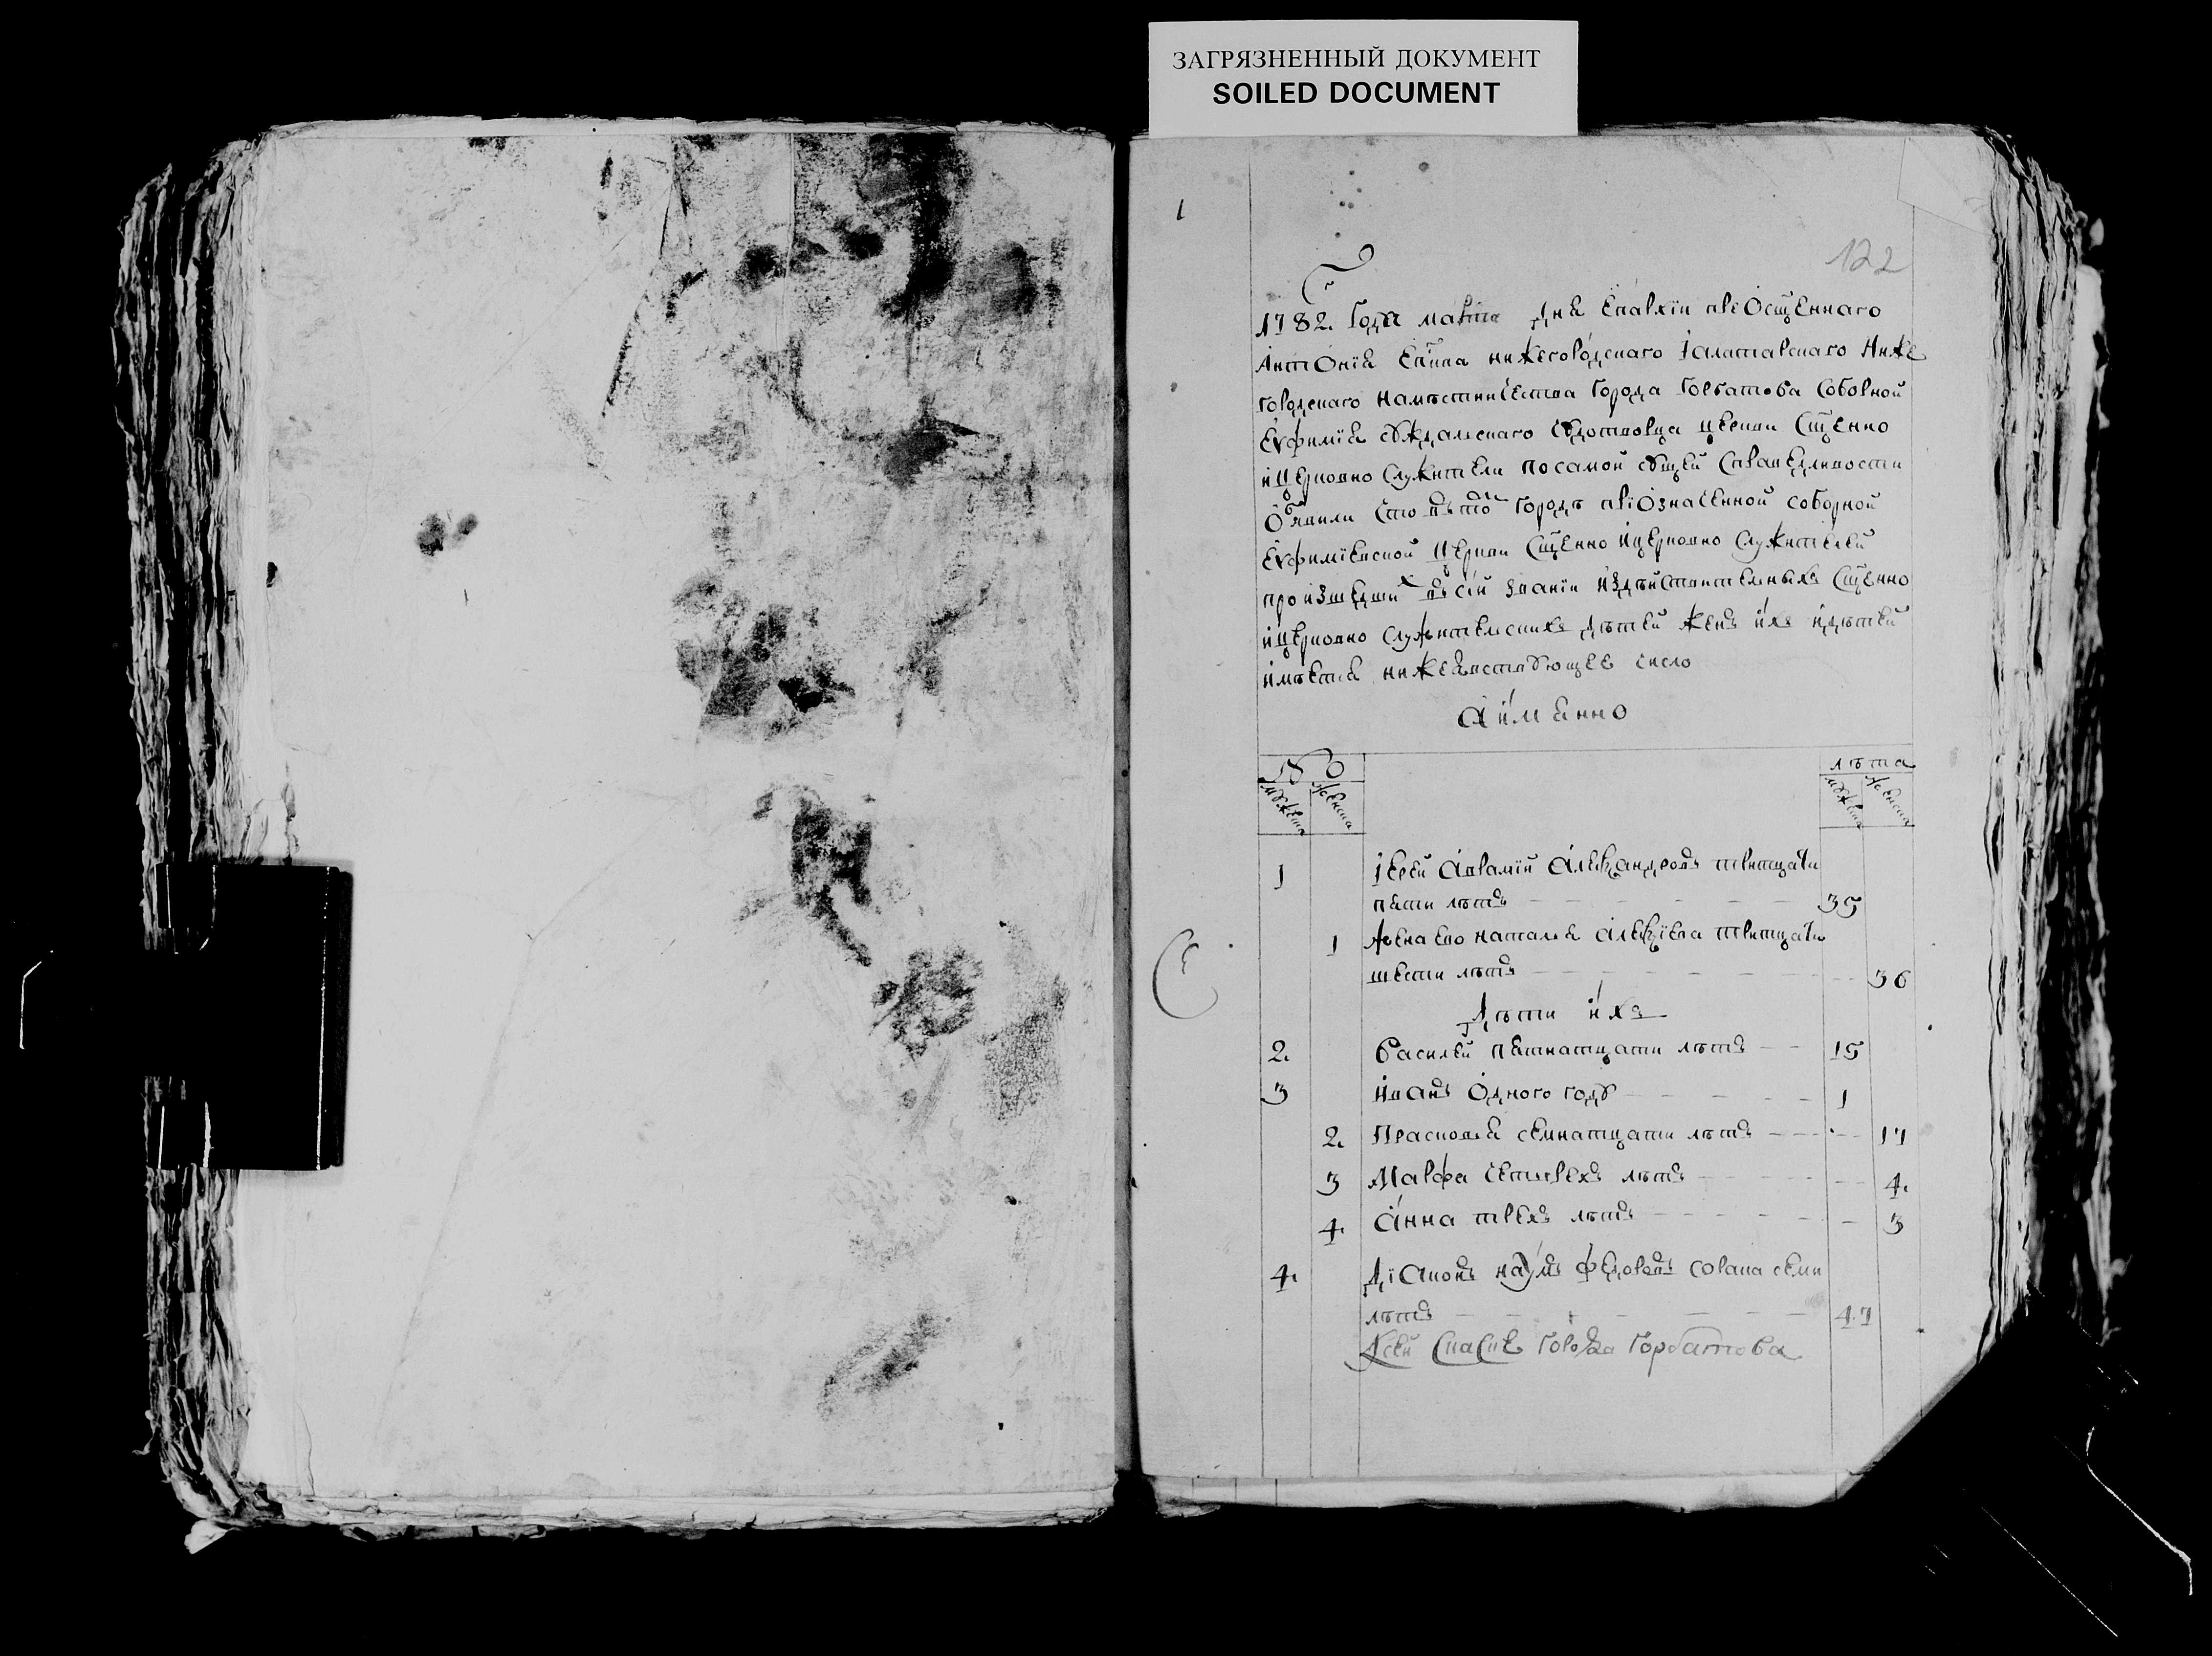 ЗАГРЯЗНЕННЫЙ ДОКУМЕНТ
SOILED DOCUMENT
1
122
1782. Года марта дня Епархіи преѡсщеннаго
Антонія Еппа нижегородскаго і алатарскаго Ниже
городскаго намѣстничества города Горбатова Соборной
Еѵфиміа суждальскаго чюдотворца церкви Сщенно
и церковно служители по самой сущей справедливости
Объявили что въ томъ городѣ преозначенной соборной
Еѵфиміевской церкви Сщенно и церковно служителей
произшедшихъ въ сіи званіи издѣйствительныхъ Сщенно
и церковно служительскихъ дѣтей женъ ихъ и дѣтей
имѣетца нижеявствующее число
А имянно
№
мужеска
женска
лѣта
мужеска
женска
1 Іерей Аврамій Александровъ тритцати
пяти лѣтъ 35
1 Жена ево наталья алексіева тритцати
шести лѣтъ 36
Дѣти ихъ
2. Василей пятнатцати лѣтъ 15
3 Иванъ Одного году 1
2. Прасковья семнатцати лѣтъ 17
3 Марфа четырехъ лѣтъ 4.
4. Анна трехъ лѣтъ 3
4. Діаконъ наумъ Федоровъ сорака семи
лѣтъ 47
Города Горбатова